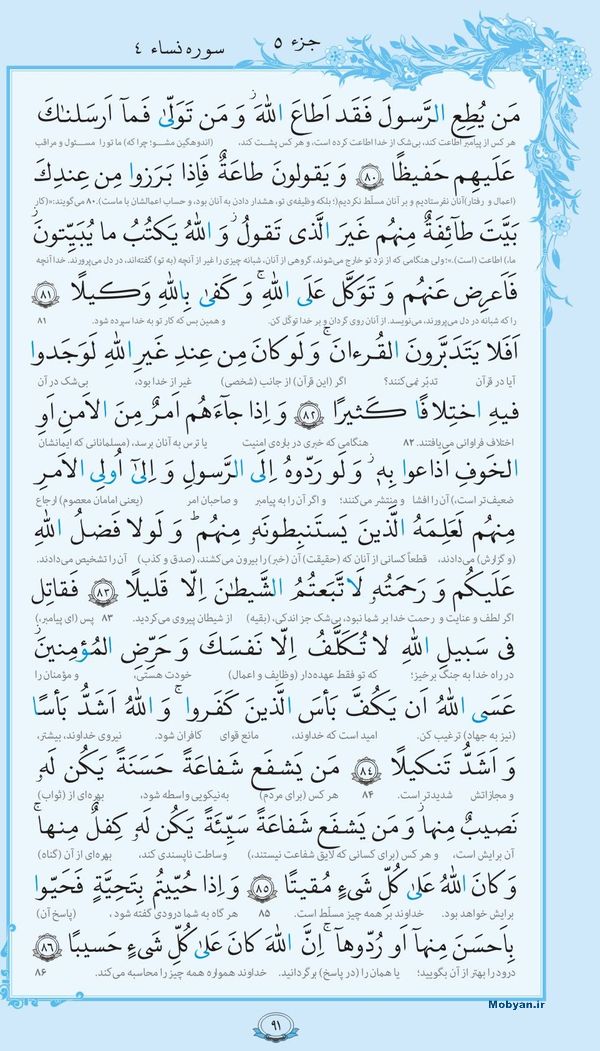 جزء ۵
سوره نساء ۴
مَن يُطِعِ الرَّسولَ فَقَد اَطاعَ اللهَ ۖ وَ مَن تَوَلّىٰ فَمآ اَرسَلناكَ
هر کس از پیامبر اطاعت کند، بی‌شک از خدا اطاعت کرده است، و هر کس پشت کند، (اندوهگین مشو؛ چرا که) ما تو را مسئول و مراقب
عَلَيهِم حَفيظًا ۸۰ وَ يَقولونَ طاعَةٌ فَاِذا بَرَزوا مِن عِندِكَ
(اعمال و رفتار) آنان نفرستادیم و بر آنان مسلّط نکردیم؛ بلکه وظیفه‌ی تو، هشدار دادن به آنان بود، و حساب اعمالشان با ماست). ۸۰ می‌گویند:«(کار
بَيَّتَ طآئِفَةٌ مِنهُم غَيرَ الَّذى تَقولُ ۖ وَ اللهُ يَكتُبُ ما يُبَيِّتونَ ۖ
ما،) اطاعت (است).»؛ ولی هنگامی که از نزد تو خارج می‌شوند، گروهی از آنان، شبانه چیزی را غیر از آنچه (به تو) گفته‌اند، در دل می‌پرورند. خدا آنچه
فَاَعرِض عَنهُم وَ تَوَكَّل عَلَى اللهِ ۚ وَ كَفىٰ بِاللهِ وَكيلًا ۸۱
را که شبانه در دل می‌پرورند، می‌نویسد. از آنان روی گردان و بر خدا توکّل کن. و همین بس که کار تو به خدا سپرده شود. ۸۱
اَفَلا يَتَدَبَّرونَ القُرءانَ ۚ وَ لَو كانَ مِن عِندِ غَيرِ اللهِ لَوَجَدوا
آیا در قرآن تدبّر نمی‌کنند؟ اگر (این قرآن) از جانب (شخصی) غیر از خدا بود، بی‌شک در آن
فيهِ اختِلافًا كَثيرًا ۸۲ وَ اِذا جآءَهُم اَمرٌ مِنَ الاَمنِ اَوِ
اختلاف فراوانی می‌یافتند. ۸۲ هنگامی که خبری در باره‌ی امنیت یا ترس به آنان برسد، (مسلمانانی که ایمانشان
الخَوفِ اَذاعوا بِهٖ ۖ وَ لَو رَدّوهُ اِلَى الرَّسولِ وَ اِلىٰٓ اُولِى الاَمرِ
ضعیف‌تر است،) آن را افشا و منتشر می‌کنند؛ و اگر آن را به پیامبر و صاحبان امر (یعنی امامان معصوم) ارجاع
مِنهُم لَعَلِمَهُ الَّذينَ يَستَنبِطونَهٗ مِنهُم ۗ وَ لَولا فَضلُ اللهِ
(و گزارش) می‌دادند، قطعاً کسانی از آنان که (حقیقت) آن (خبر) را بیرون می‌کشند، (صدق و کذب) آن را تشخیص می‌دادند.
عَلَيكُم وَ رَحمَتُهٗ لَاتَّبَعتُمُ الشَّيطٰنَ اِلّا قَليلًا ۸۳ فَقاتِل
اگر لطف و عنایت و رحمت خدا بر شما نبود، بی‌شک جز اندکی، (بقیه) از شیطان پیروی می‌کردید. ۸۳ پس (ای پیامبر،)
فى سَبيلِ اللهِ لا تُكَلَّفُ اِلّا نَفسَكَ وَ حَرِّضِ المُؤمِنينَ ۖ
در راه خدا به جنگ برخیز؛ که تو فقط عهده‌دار (وظایف و اعمال) خودت هستی، و مؤمنان را
عَسَى اللهُ اَن يَكُفَّ بَأسَ الَّذينَ كَفَروا ۚ وَ اللهُ اَشَدُّ بَأسًا
(نیز به جهاد) ترغیب کن. امید است که خداوند، مانع قوای کافران شود. نیروی خداوند، بیشتر،
وَ اَشَدُّ تَنكيلًا ۸۴ مَن يَشفَع شَفاعَةً حَسَنَةً يَكُن لَهٗ
و مجازاتش شدیدتر است. ۸۴ هر کس (برای مردم) به‌نیکویی واسطه شود، بهره‌ای از (ثواب)
نَصيبٌ مِنها ۖ وَ مَن يَشفَع شَفاعَةً سَيِّئَةً يَكُن لَهٗ كِفلٌ مِنها ۗ
آن برایش است، و هر کس (برای کسانی که لایق شفاعت نیستند،) وساطت ناپسندی کند، بهره‌ای از آن (گناه)
وَ كانَ اللهُ عَلىٰ كُلِّ شَىءٍ مُقيتًا ۸۵ وَ اِذا حُيّيتُم بِتَحِيَّةٍ فَحَيّوا
برایش خواهد بود. خداوند بر همه چیز مسلّط است. ۸۵ هر گاه به شما درودی گفته شود، (پاسخ آن)
بِاَحسَنَ مِنهآ اَو رُدّوهآ ۗ اِنَّ اللهَ كانَ عَلىٰ كُلِّ شَىءٍ حَسيبًا ۸۶
درود را بهتر از آن بگویید؛ یا همان را (در پاسخ) برگردانید. خداوند همواره همه چیز را محاسبه می‌کند. ۸۶
Mobyan.ir
۹۱